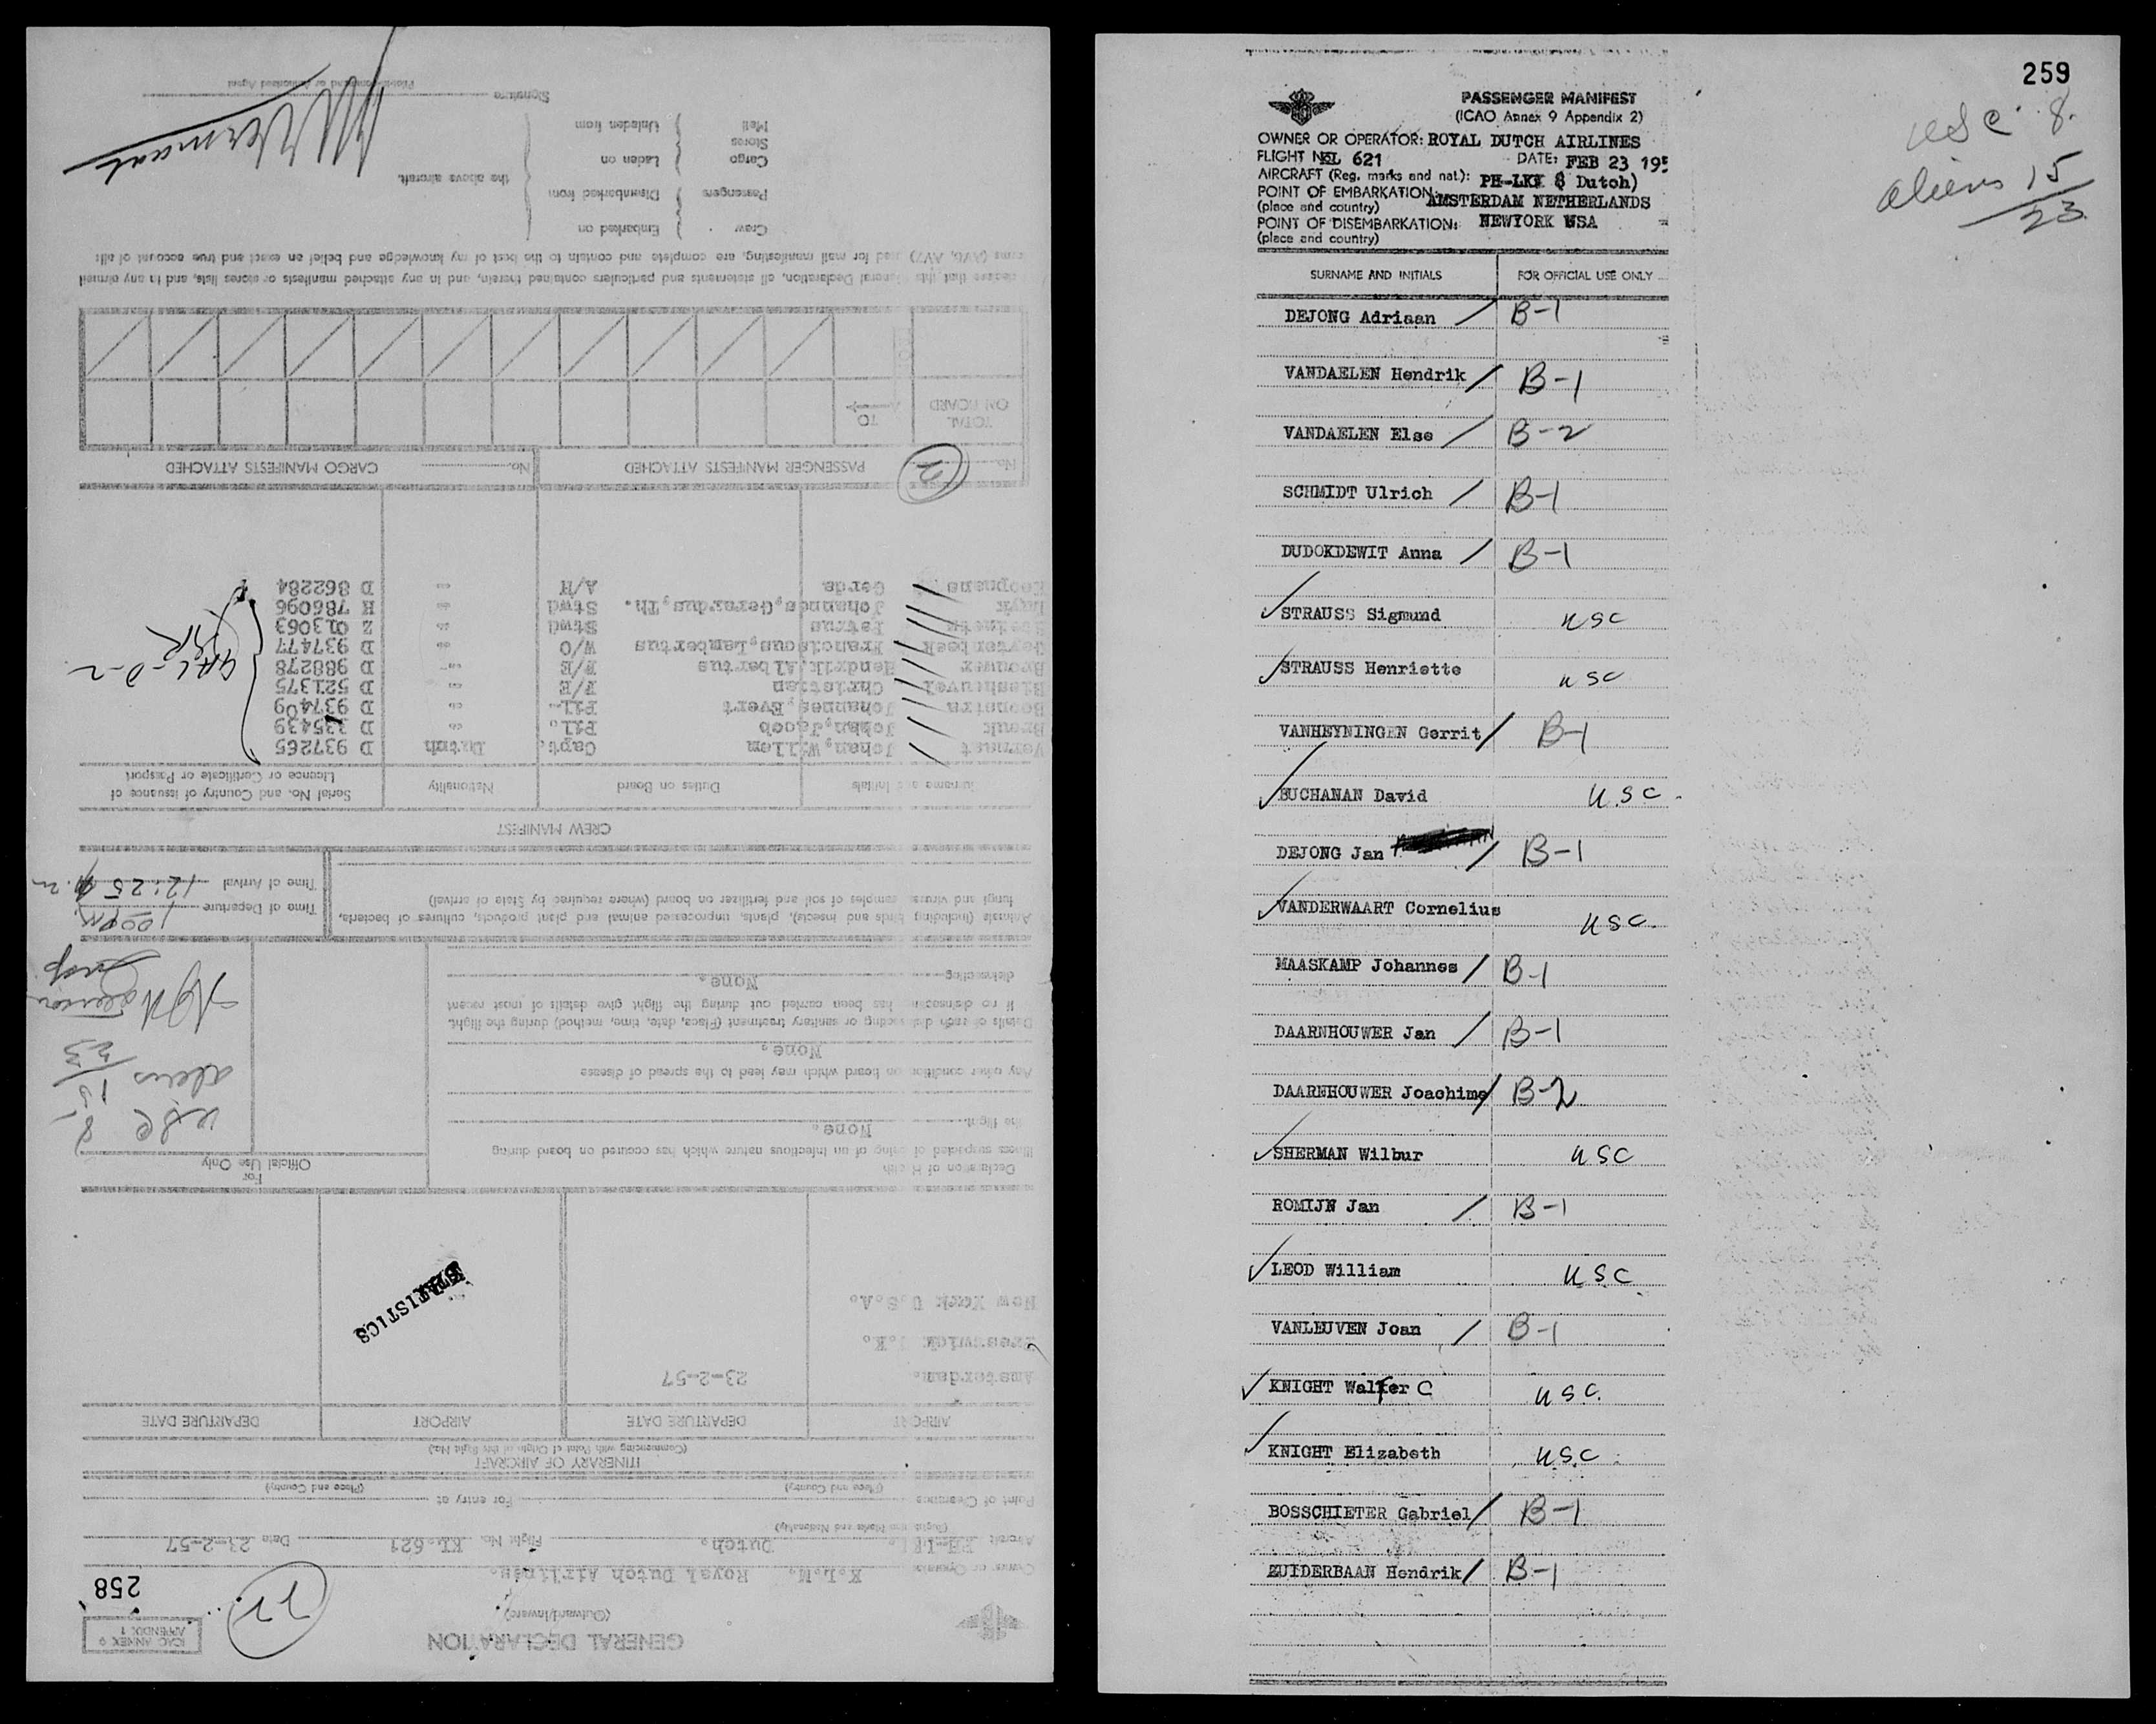 ICAO ANNEX 9
APPENDIX 1
258
GENERAL DECLARATION
(Outward/Inward)
Owner or Operator K.L.M. Royal Dutch Airlines.
Aircraft Dutch. Flight No. KL.621 Date 23-2-57
(Registration Marks and Nationality)
Point of Clearance For entry at
(Place and Country) (Place and Country)
ITINERARY OF AIRCRAFT
(Commencing with Point of Origin of this flight No.)
AIRPORT DEPARTURE DATE AIRPORT DEPARTURE DATE
Amsterdam. 23-2-57
Prestwick U.K.
New York U.S.A.
STATISTICS
Declaration of Health
For
Official Use Only
Illness suspected of being of an infectious nature which has occured on board during
the flight.
None.
Any other condition on board which may lead to the spread of disease
None.
Details of each disinsecting or sanitary treatment (Place, date, time, method) during the flight.
If no disinsecting has been carried out during the flight give details of most recent
disinsecting
None.
USC 8
aliens 15
23
Animals (including birds and insects), plants, unprocessed animal and plant products, cultures of bacteria,
fungi and viruses samples of soil and fertilizer on board (where required by State of arrival)
Time of Departure 1 00 PM
Time of Arrival 12:25
CREW MANIFEST
Surname and Initials Duties on Board Nationality Serial No. and Country of issuance of
Licence or Certificate or Passport
Johan,Willem Capt. Dutch D 937265
Brault Johan,Jacob Pil. D 335439
Boonstra Johannes,Evert Pil. D 937409
Blesheuvel Christian F/E D 521375
Brouwer Hendrik,Albertus F/E D 988278
Franciscus,Lambertus W/O D 937477
Petrus Stwd Z 013063
Johannes,Gerardus,Th. Stwd H 786096
Koopmans Gerda A/H D 862284
No. 2 PASSENGER MANIFESTS ATTACHED No. CARGO MANIFESTS ATTACHED
TOTAL
ON BOARD
TO
I declare that this General Declaration, all statements and particulars contained therein, and in any attached manifests or stores lists, and in any airmail
forms (AV6, AV7) used for mail manifesting, are complete and contain to the best of my knowledge and belief an exact and true account of all:
Crew Embarked on
Passengers Disembarked from
the above aircraft.
Cargo Laden on
Stores
Mail Unladen from
Signature
Pilot-in-command or Authorised Agent
259
USC 8.
aliens 15
23
PASSENGER MANIFEST
(ICAO Annex 9 Appendix 2)
OWNER OR OPERATOR: ROYAL DUTCH AIRLINES
FLIGHT No KL 621 DATE: FEB 23 195
AIRCRAFT (Reg. marks and nat): Dutch)
POINT OF EMBARKATION: AMSTERDAM NETHERLANDS
(place and country)
POINT OF DISEMBARKATION: NEWYORK USA
(place and country)
SURNAME AND INITIALS FOR OFFICIAL USE ONLY
DEJONG Adriaan B-1
VANDAELEN Hendrik B-1
VANDAELEN Else B-2
SCHMIDT Ulrich B-1
DUDOKDEWIT Anna B-1
STRAUSS Sigmund USC
STRAUSS Henriette USC
VANHEYNINGEN Gerrit B-1
BUCHANAN David U.S.C.
DEJONG Jan B-1
VANDERWAART Cornelius USC.
MAASKAMP Johannes B-1
DAARNHOUWER Jan B-1
DAARNHOUWER Joachime B-2
SHERMAN Wilbur USC
ROMIJN Jan B-1
LEOD William USC
VANLEUVEN Joan B-1
KNIGHT Walter C USC.
KNIGHT Elizabeth U.S.C.
BOSSCHIETER Gabriel B-1
ZUIDERBAAN Hendrik B-1